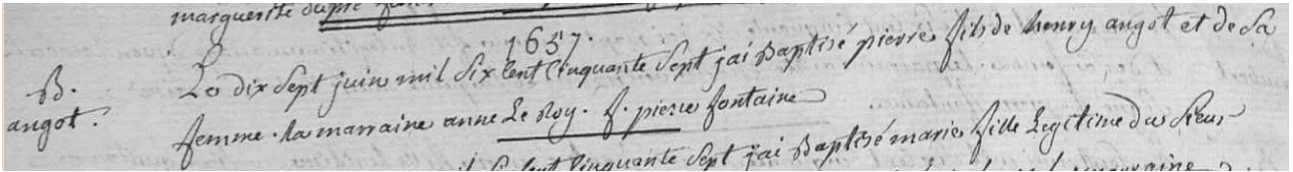 marguerite dupré
1657.
B.
angot.
Le dix Sept juin mil Six Cent Cinquante Sept jai Baptisé pierre fils de henry angot et de Sa
femme. la marraine anne Le Roy. f. pierre fontaine
Six Cent Cinquante Sept jai Baptisé marie fille Legitime du Sieur
marraine